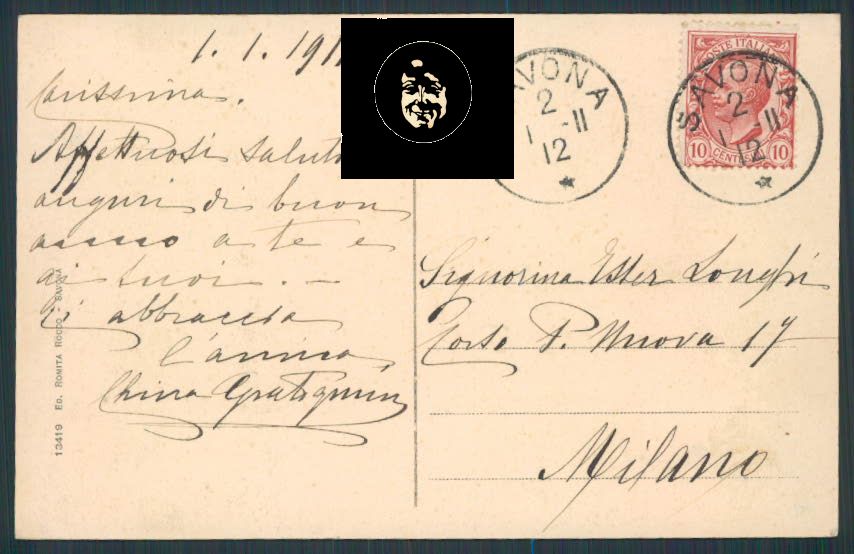 1. 1. 191
Carissima.
Affettuosi saluti
auguri di buon
anno a te e
ai tuoi. –
Ti abbraccia
l'amica
13419 ED. ROMITA ROCCO - SAVONA
SAVONA
2
1 -11
12
POSTE ITALIANE
10 CENTESIMI 10
SAVONA
2
1 -11
12
Signorina Ester Longhi
Corso P. Nuova 17
Milano